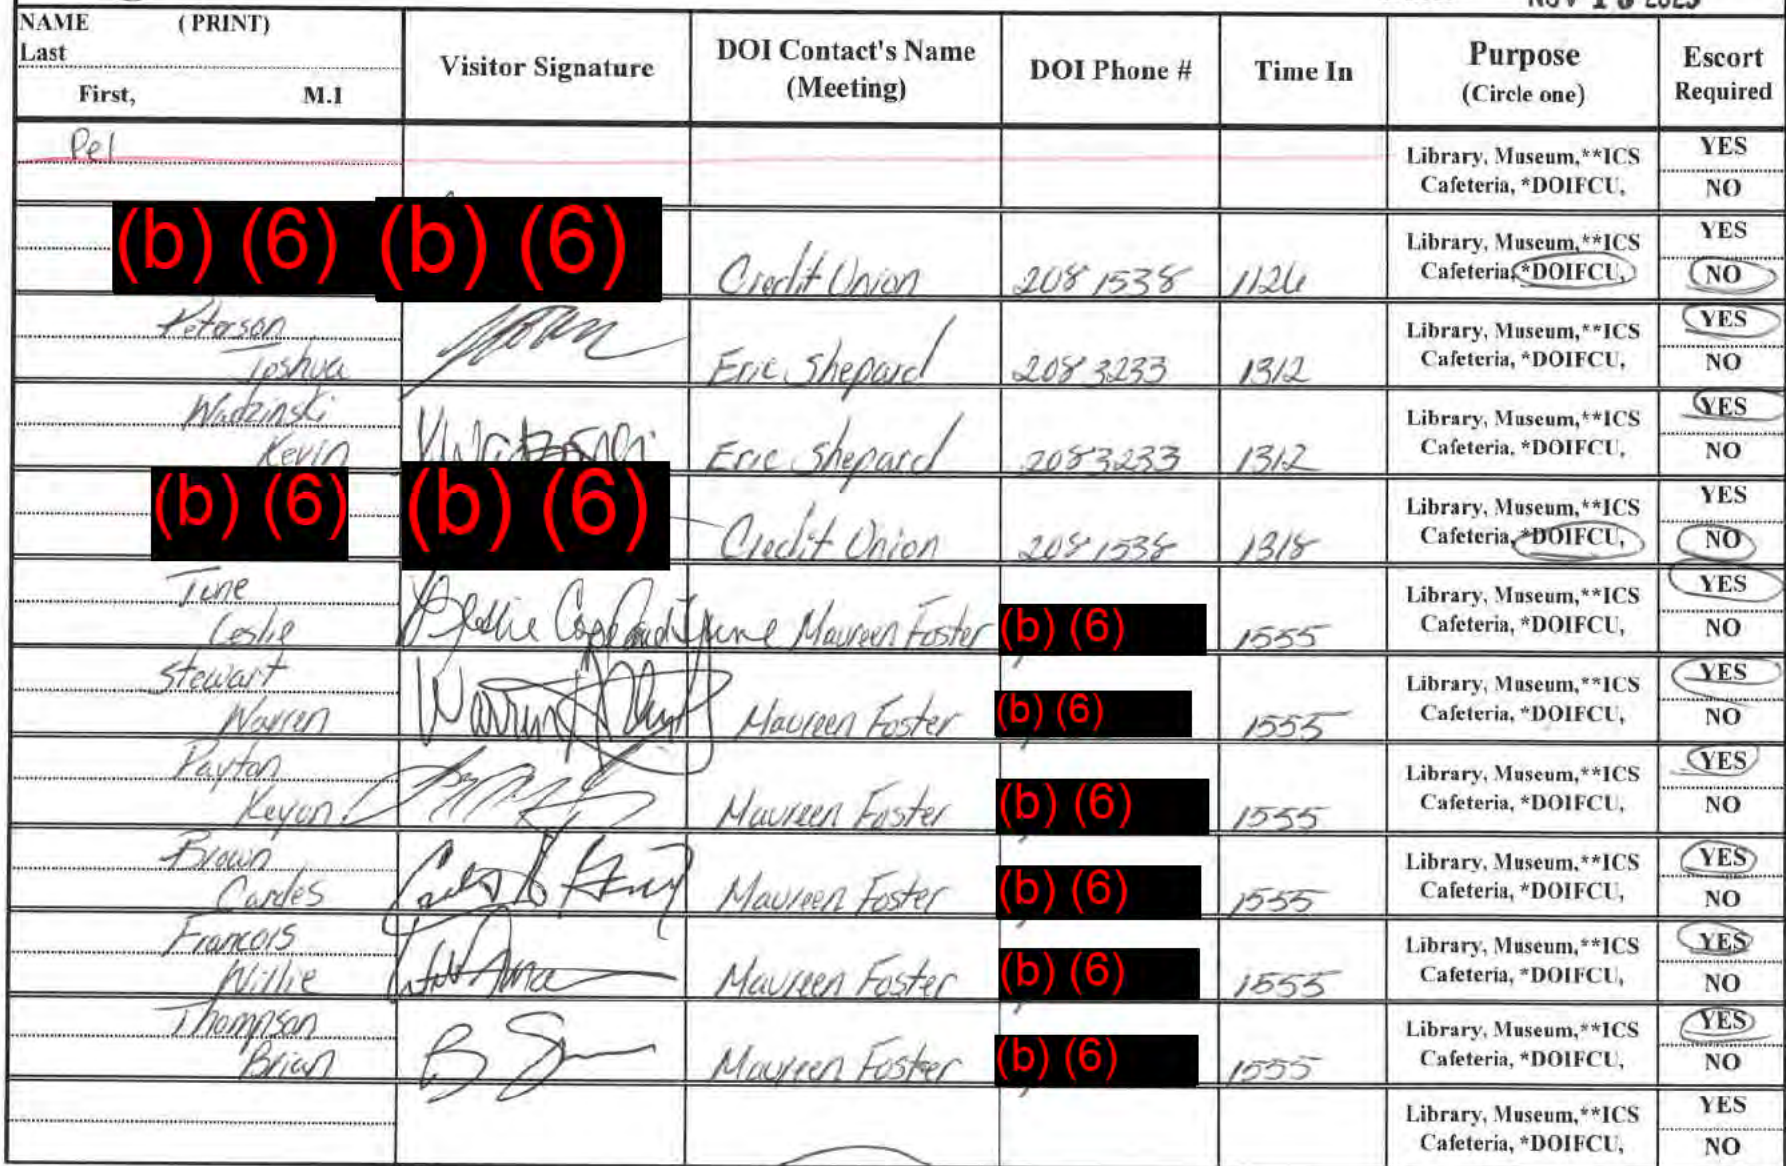 NOV 1
NAME (PRINT)
Last
First, M.I
Visitor Signature
DOI Contact's Name
(Meeting)
DOI Phone #
Time In
Purpose
(Circle one)
Escort
Required
Pel
Library, Museum,**ICS
Cafeteria, *DOIFCU,
YES
NO
(b) (6) (b) (6) Credit Union 208 1538 1126
Library, Museum,**ICS
Cafeteria, *DOIFCU,
YES
NO
Peterson
Joshua
Eric Shepard 208 3233 1312
Library, Museum,**ICS
Cafeteria, *DOIFCU,
YES
NO
Wadzinski
Kevin
Eric Shepard 208 3233 1312
Library, Museum,**ICS
Cafeteria, *DOIFCU,
YES
NO
(b) (6) (b) (6) Credit Union 208 1538 1318
Library, Museum,**ICS
Cafeteria, *DOIFCU,
YES
NO
Tune
Leslie
Leslie Copeland Tune Maureen Foster (b) (6) 1555
Library, Museum,**ICS
Cafeteria, *DOIFCU,
YES
NO
Stewart
Warren
Maureen Foster (b) (6) 1555
Library, Museum,**ICS
Cafeteria, *DOIFCU,
YES
NO
Payton
Keyon
Maureen Foster (b) (6) 1555
Library, Museum,**ICS
Cafeteria, *DOIFCU,
YES
NO
Brown
Cardes
Maureen Foster (b) (6) 1555
Library, Museum,**ICS
Cafeteria, *DOIFCU,
YES
NO
Francois
Willie
Maureen Foster (b) (6) 1555
Library, Museum,**ICS
Cafeteria, *DOIFCU,
YES
NO
Thompson
Brian
Maureen Foster (b) (6) 1555
Library, Museum,**ICS
Cafeteria, *DOIFCU,
YES
NO
Library, Museum,**ICS
Cafeteria, *DOIFCU,
YES
NO